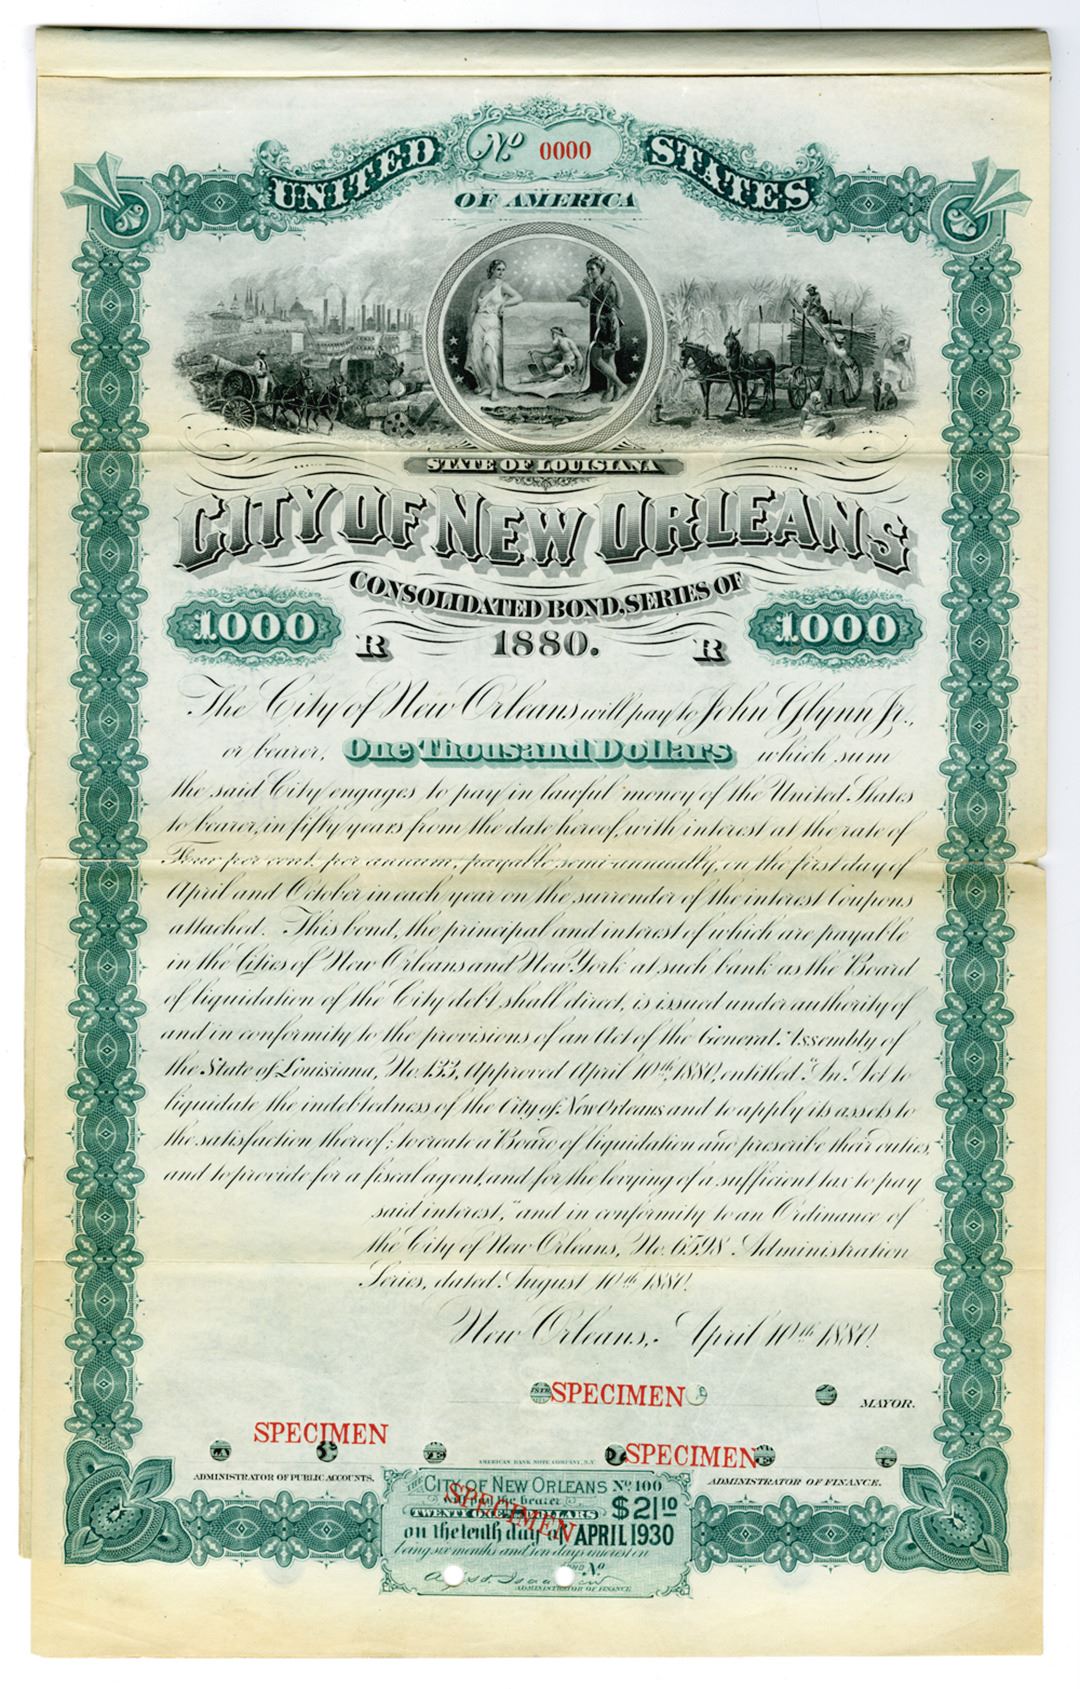 UNITED No. 0000 STATES
OF AMERICA
STATE OF LOUISIANA
CITY OF NEW ORLEANS
CONSOLIDATED BOND, SERIES OF
1000 R 1880. R 1000
The City of New Orleans will pay to John Glynn Jr.,
or bearer, One Thousand Dollars which sum
the said City engages to pay in lawful money of the United States
to bearer, in fifty years from the date hereof, with interest at the rate of
Four per cent. per annum, payable semi-annually, on the first day of
April and October in each year on the surrender of the interest Coupons
attached. This bond, the principal and interest of which are payable
in the Cities of New Orleans and New York at such bank as the Board
of liquidation of the City debt, shall direct, is issued under authority of
and in conformity to the provisions of an Act of the General Assembly of
the State of Louisiana, No. 133, Approved April 10th, 1880, entitled "An Act to
liquidate the indebtedness of the City of New Orleans and to apply its assets to
the satisfaction thereof; to create a Board of liquidation and prescribe their duties,
and to provide for a fiscal agent, and for the levying of a sufficient tax to pay
said interest," and in conformity to an Ordinance of
the City of New Orleans, No. 6598 Administration
Series, dated August 10th 1880.
New Orleans, April 10th 1880.
SPECIMEN
MAYOR.
SPECIMEN
SPECIMEN
AMERICAN BANK NOTE COMPANY, N.Y.
ADMINISTRATOR OF PUBLIC ACCOUNTS.
ADMINISTRATOR OF FINANCE.
The CITY OF NEW ORLEANS No. 100
bearer
TWENTY ONE DOLLARS $21 10
SPECIMEN
on the tenth day of APRIL 1930
being six months and ten days interest on
No.
ADMINISTRATOR OF FINANCE